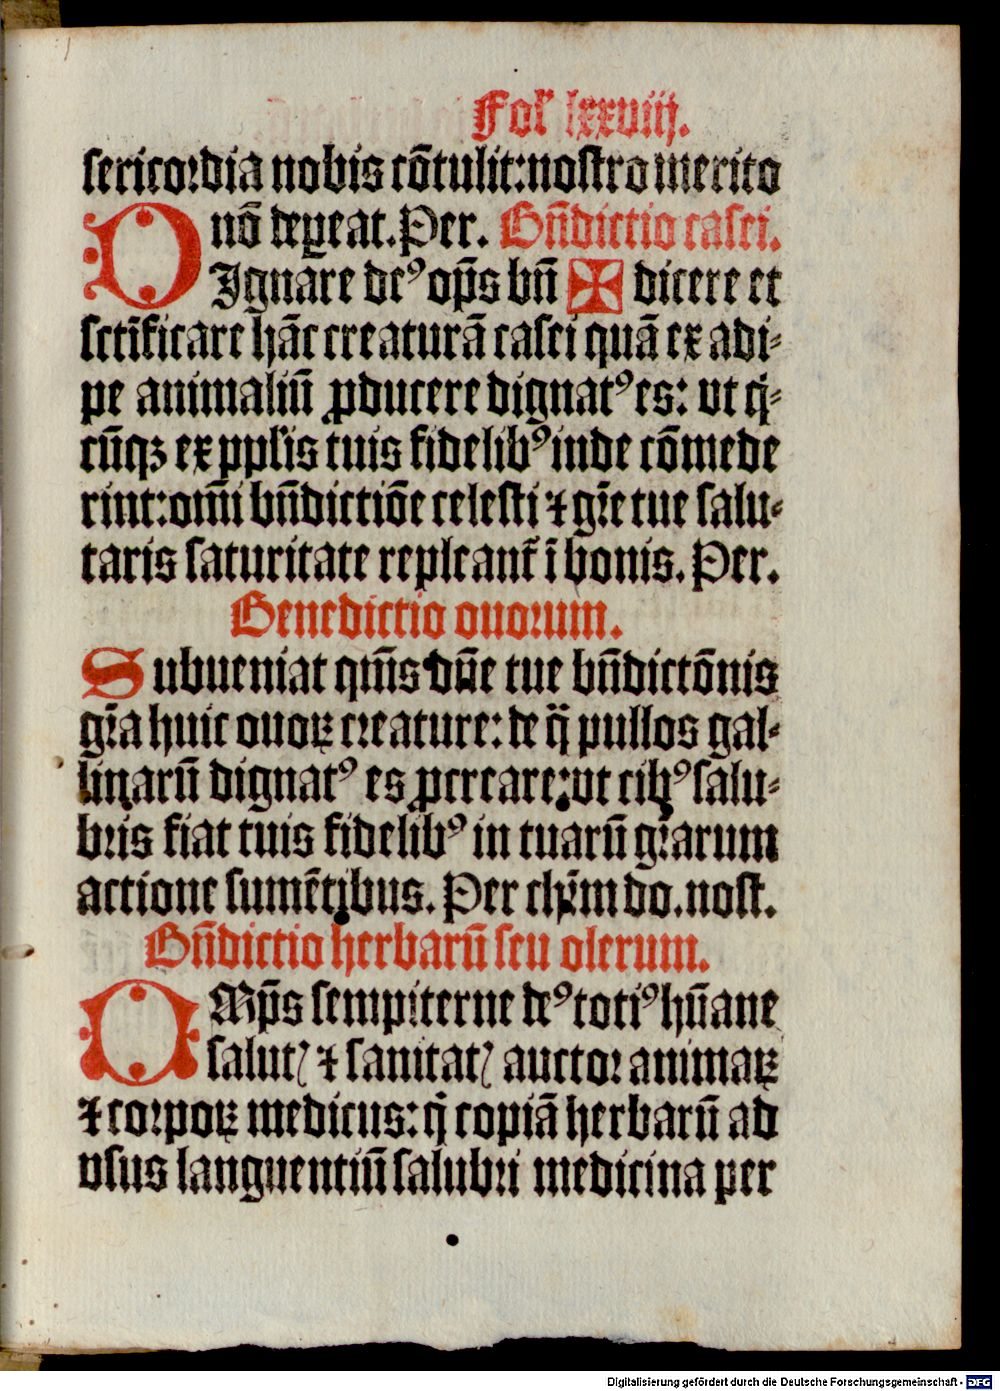 Fol' lxxviij.
sericordia nobis cōtulit: nostro merito
nō depereat. Per. Bn̄dictio casei.
DIgnare deꝰ op̄s bn̄ ✠ dicere et
sctīficare hāc creaturā casei quā ex adi-
pe animaliū ꝓducere dignatꝰ es: vt q̇-
cūqꝫ ex pplis tuis fidelibꝰ inde cōmede
rint: om̄i bn̄dictiōe celesti ⁊ gr̄e tue salu-
taris saturitate repleant᷑ ī bonis. Per.
Benedictio ouoꝛum.
Subueniat qm̄s dn̄e tue bn̄dictōnis
gr̄a huic ouoꝝ creature: de q̄ pullos gal-
linarū dignatꝰ es ꝓcreare: vt cibꝰ salu-
bris fiat tuis fidelibꝰ in tuarū grarum
actione sumētibus. Per chr̄m do. nost.
Bn̄dictio herbarū seu olerum.
OMp̄s sempiterne deꝰ totiꝰ hūane
salutꝭ ⁊ sanitatꝭ auctoꝛ animaꝝ
⁊ coꝛpoꝝ medicus: q̇ copiā herbarū ad
vsus languentiū salubri medicina per
Digitalisierung gefördert durch die Deutsche Forschungsgemeinschaft - DFG